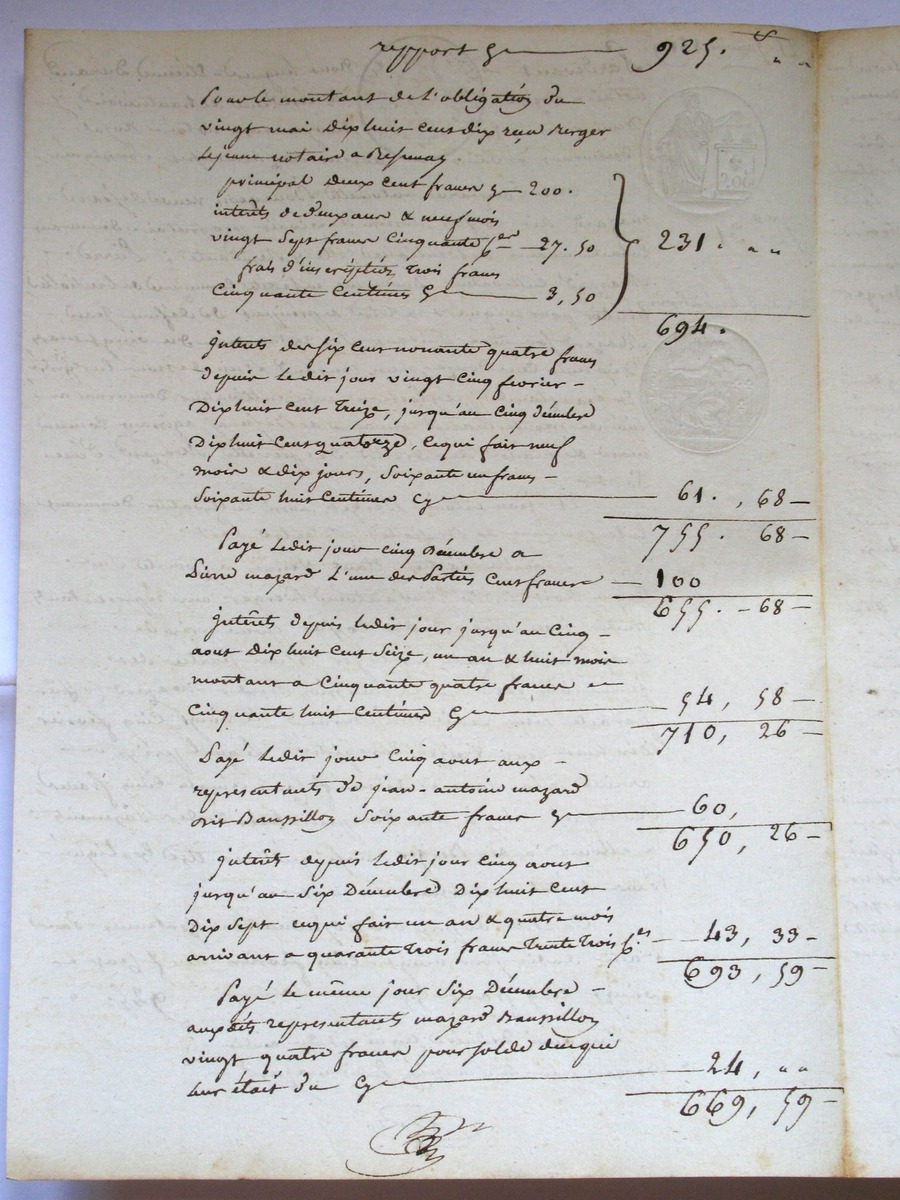 repport 925. " "
Pour le montant de l'obligation du
vingt mai dix huit cent dix reçu Berger
Lejeune notaire a
principal deux cent francs 200.
interêts de deux ans & neuf mois
vingt sept francs cinquante ces 27. 50
frais d'inscription trois francs
cinquante centimes 3, 50
231. " "
694.
Interets des six cent nonante quatre francs
depuis ledit jour vingt cinq fevrier –
Dix huit cent treize, jusqu'au cinq décembre
Dix huit cent quatorze, ce qui fait neuf
mois & dix jours, soixante un francs –
soixante huit centimes 61. , 68 –
755. 68 –
Payé ledit jour cinq Décembre a
Pierre mazard l'une des parties cent francs — 100
655. – 68 –
Interêts depuis ledit jour jusqu'au cinq –
aout dix huit cent seize, un an & huit mois
montant a cinquante quatre francs
cinquante huit centimes 54, 58 –
710, 26 –
Payé ledit jour cinq aout aux –
representants de jean-antoine mazard
dit Baussillon soixante francs 60,
650, 26 –
Interêts depuis ledit jour cinq aout
jusqu'au six Décembre Dix huit cent
Dix sept ce qui fait un an & quatre mois
arrivant a quarante trois francs trente trois ces — 43, 33 –
693, 59 –
Payé le même jour six Décembre –
auxdits representants mazard Baussillon
vingt quatre francs pour solde de ce qui
leur était du 24, " "
669, 59 –